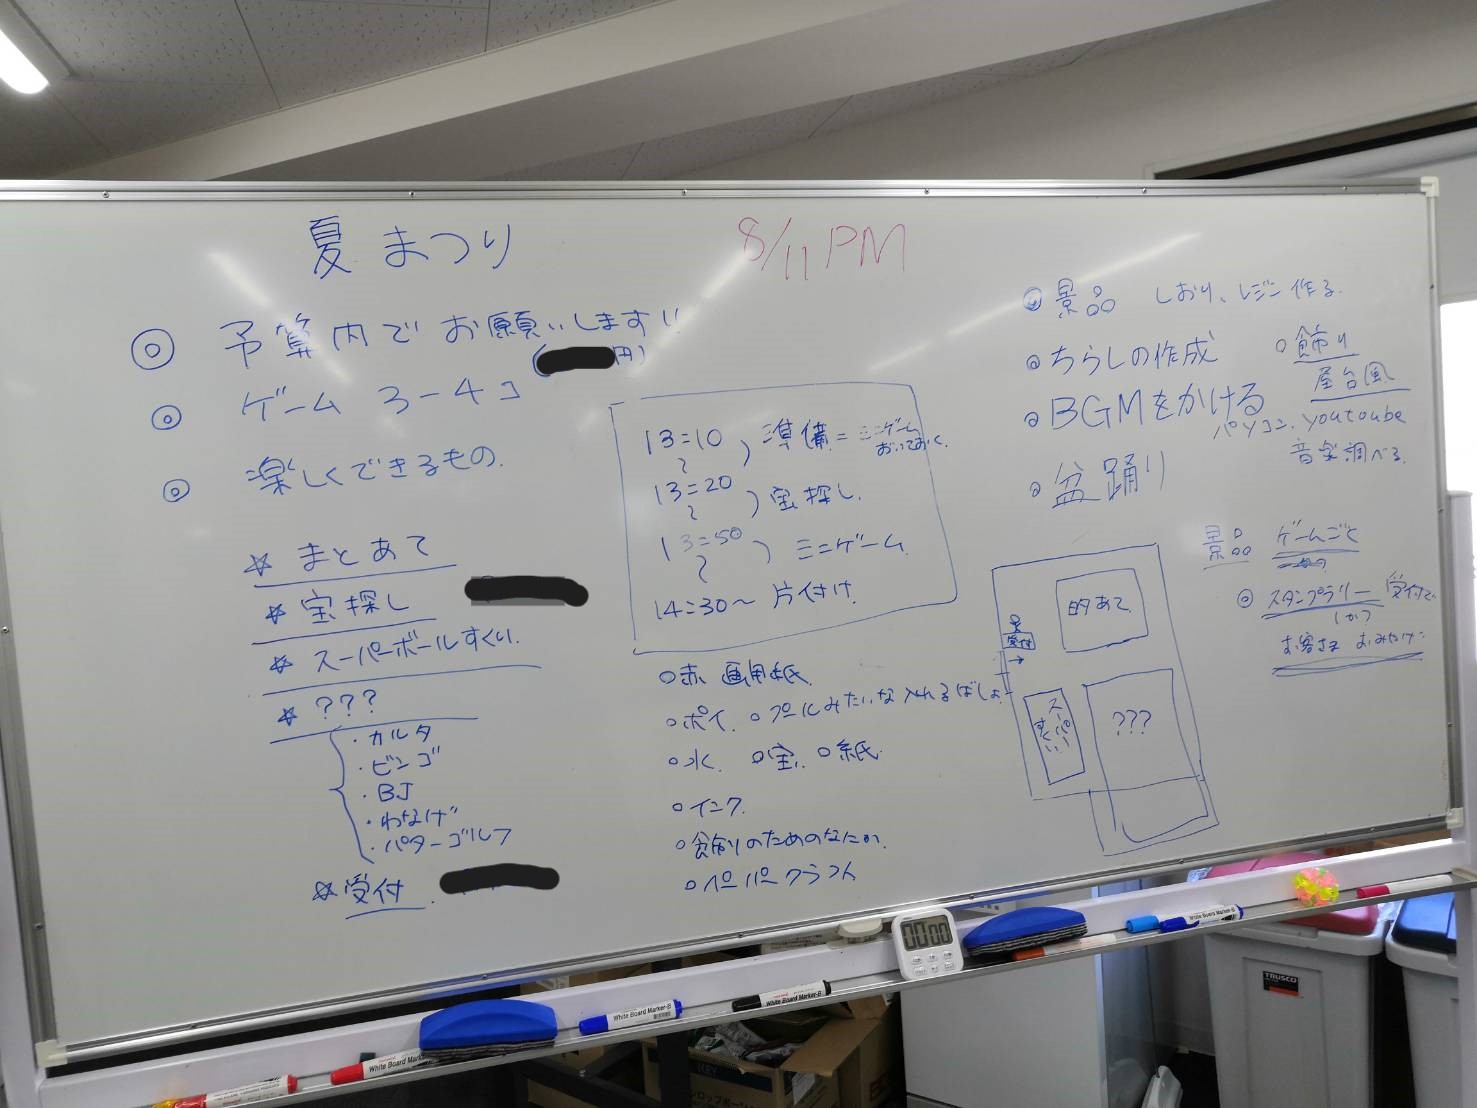 夏まつり
8/11 PM
◎ 予算内でお願いします!!
円)
◎ ゲーム 3-4コ
◎ 楽しくできるもの.
☆ まとあて
☆ 宝探し
☆ スーパーボールすくい.
☆ ???
・カルタ
・ビンゴ
・BJ
・わなげ
・パターゴルフ
☆受付
13:10
〜 ) 準備=ミニゲーム
おいておく.
13:20
〜 ) 宝探し.
13:50
〜 ) ミニゲーム
14:30〜 片付け
○赤 画用紙
○ポイ. ○プールみたいな入れるばしょ
○水. ○宝. ○紙
○インク
○飾りのためのなにか.
○ペーパークラフト
◎景品 しおり、レジン作る.
◎ちらしの作成 ○飾り
屋台風
◎BGMをかける
パソコン. youtoube
音楽調べる.
◎盆踊り
景品 ゲームごと
◎ スタンプラリー 受付で
お客さま おみやげ
的あて
受付
→
スーパーすくい
???
00 00
White Board Marker-B
White Board Marker-B
White Board Marker-B
White Board Marker-B
TRUSCO
KEY